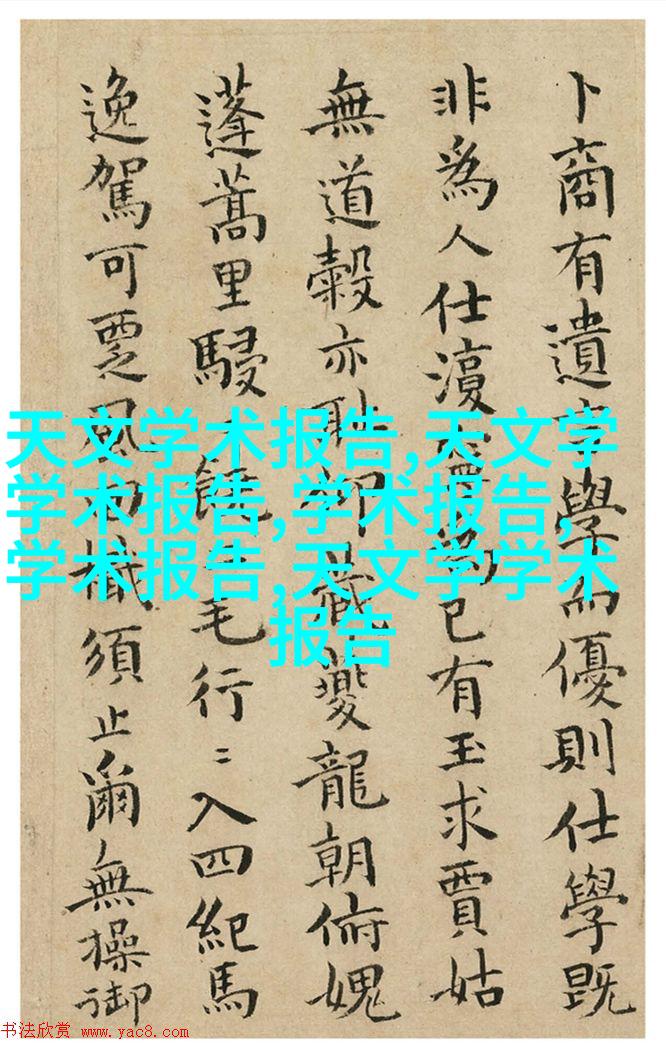 卜商有遺學而優則仕學既
非爲人仕爲己有玉求賈姑
無道穀亦恥仰夔龍朝俯媿
蓬蒿里駸毛行〻入四紀馬
逸駕可覂風檝須止爾無操御
天文学术报告,天文学
学术报告,学术报告,
学术报告,天文学学术
报告
书法欣赏 www.yac8.com